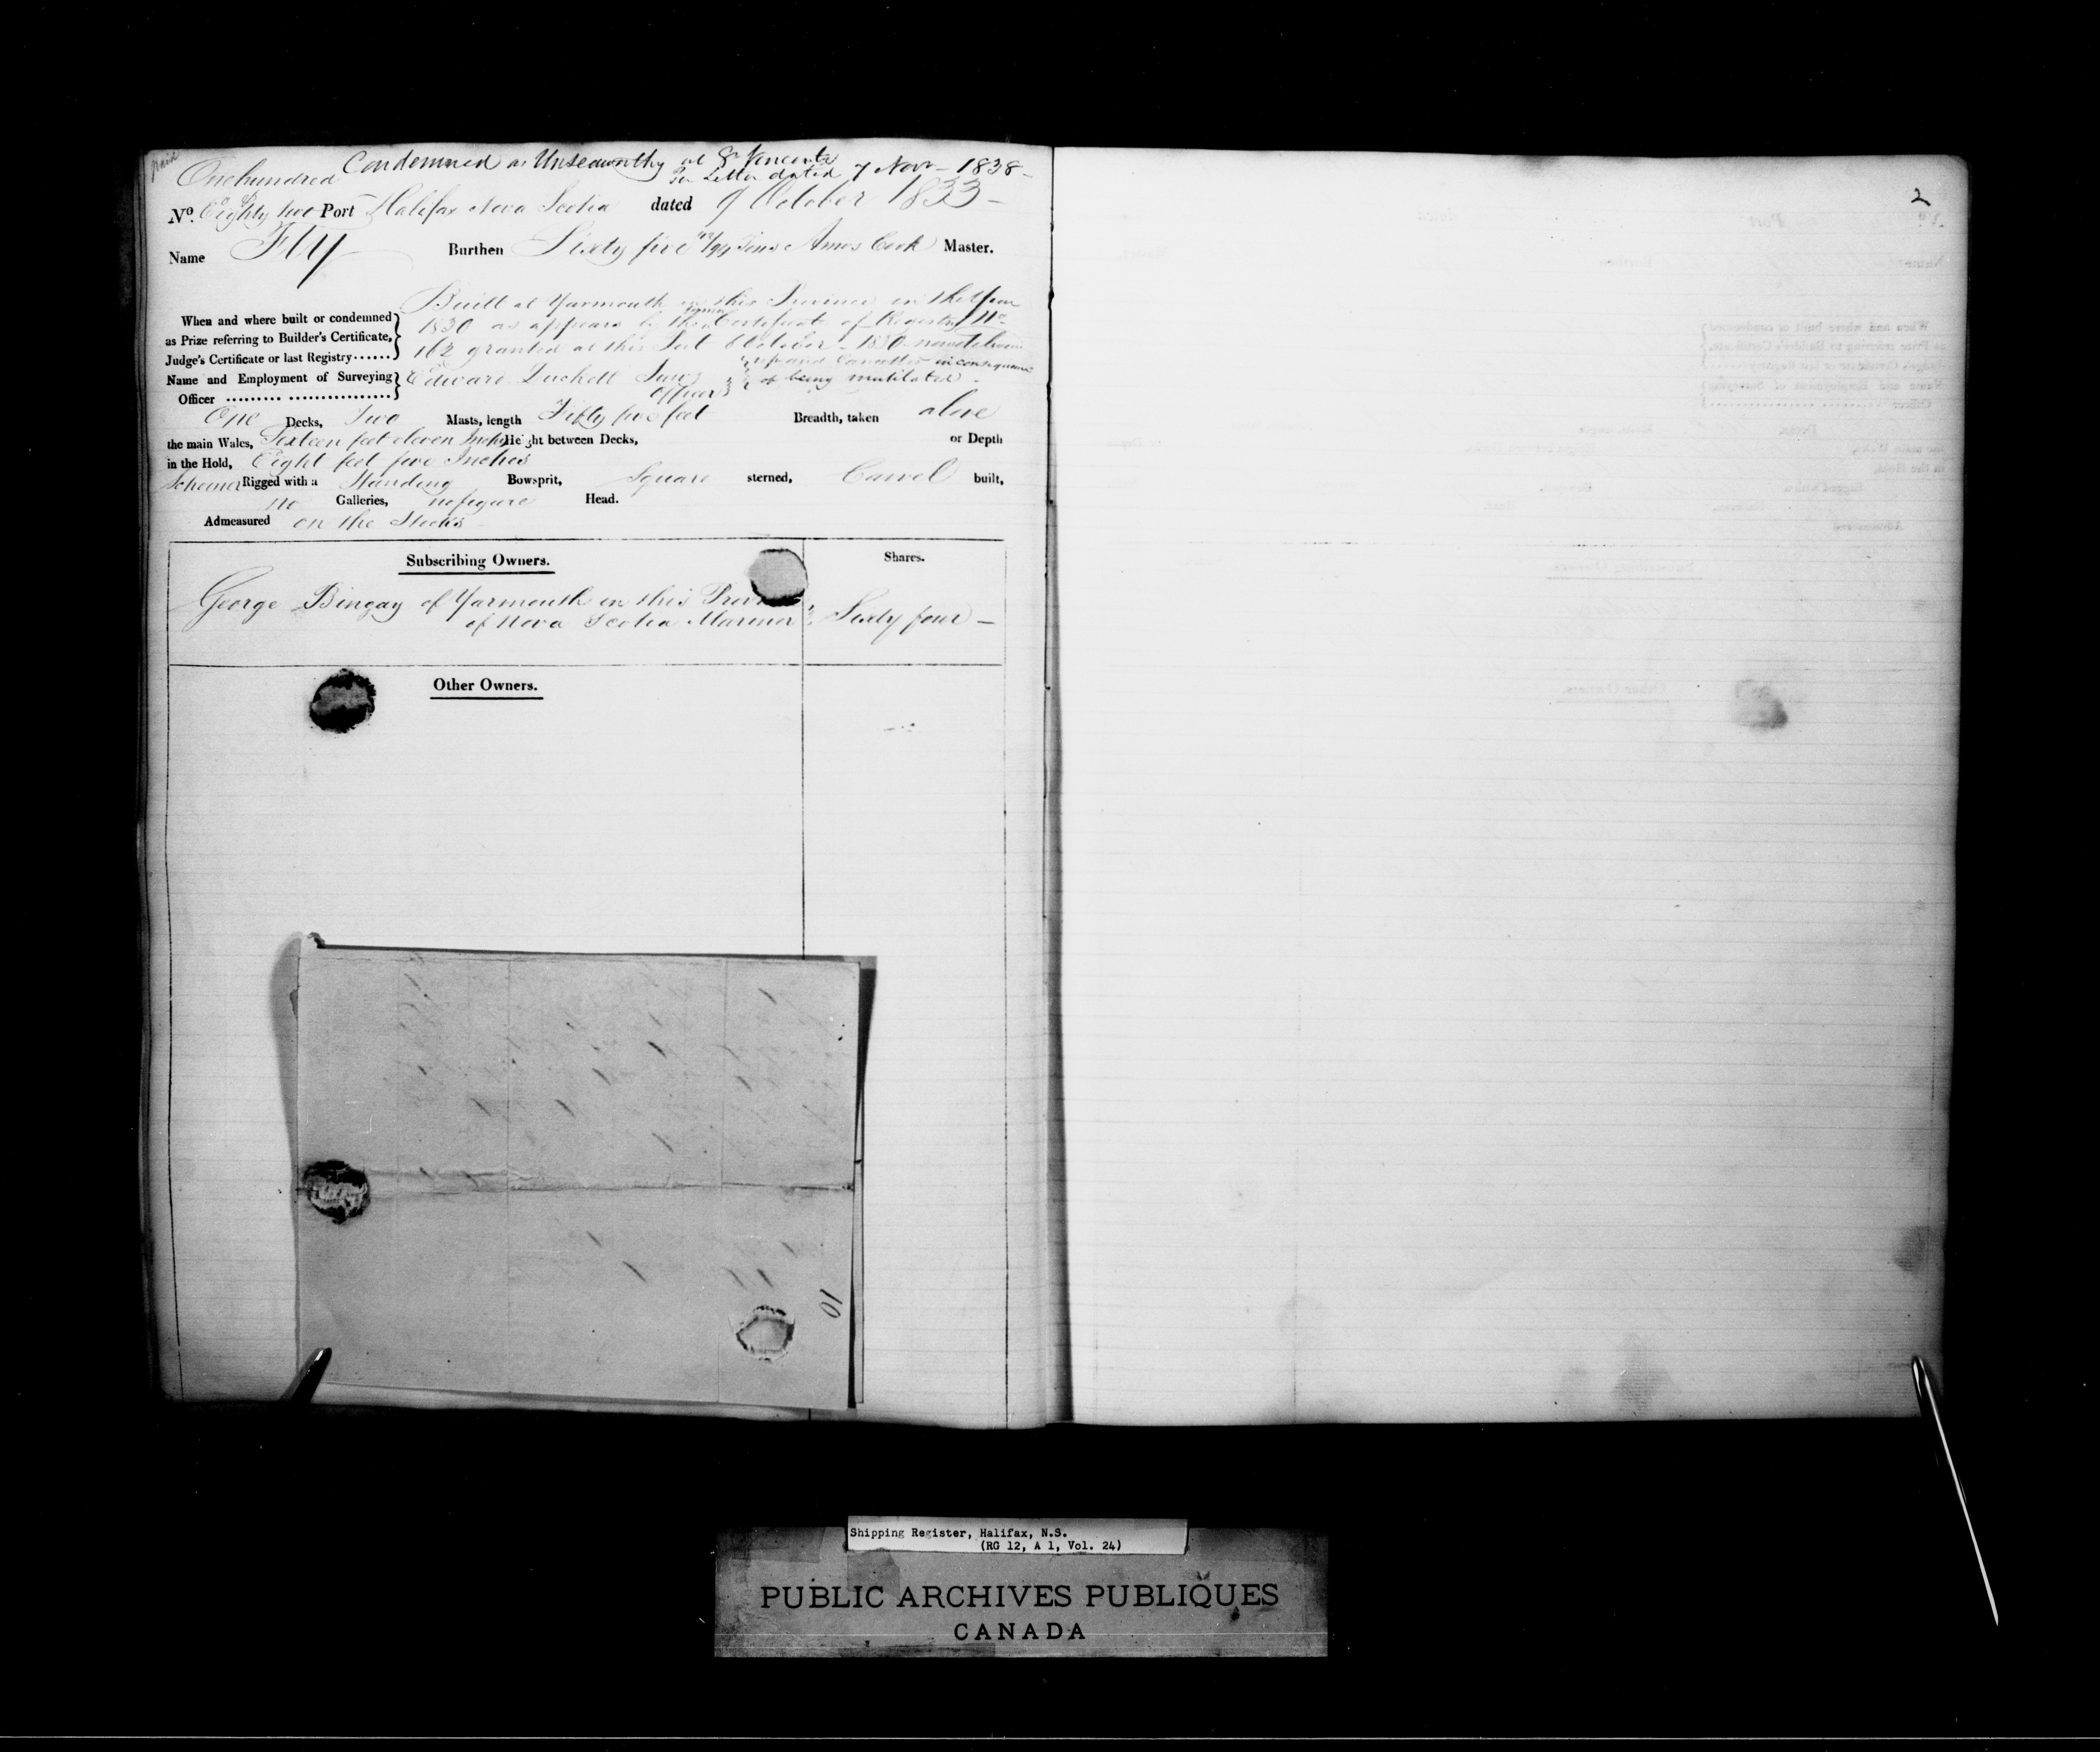 Condemned as Unseaworthy at St Vincents
Per Letter dated 7 Nov - 1838 -
One hundred
No. Eighty two Port Halifax Nova Scotia dated 9 October 1833 -
Name Fly Burthen Sixty five /94 Tons Amos Cook Master.
When and where built or condemned
as Prize referring to Builder's Certificate,
Judge's Certificate or last Registry......
Built at Yarmouth in this Province in the Year
1830 as appears by the former Certificate of Registry No.
162 granted at this Port October - 1830 now delivered
up and Cancelled in consequence
of being mutilated -
Name and Employment of Surveying
Officer
Edward Duckett Surv
Officer
One Decks, Two Masts, length Fifty five feet Breadth, taken above
the main Wales, Sixteen feet eleven Inches Height between Decks, or Depth
in the Hold, Eight feet five Inches
Schooner Rigged with a Standing Bowsprit, Square sterned, Carvel built,
no Galleries, no figure Head.
Admeasured on the Stocks
Subscribing Owners.
Shares.
George Bingay of Yarmouth in this Provin
of Nova Scotia Mariner
Sixty four -
Other Owners.
10
2
Shipping Register, Halifax, N.S.
(RG 12, A 1, Vol. 24)
PUBLIC ARCHIVES PUBLIQUES
CANADA